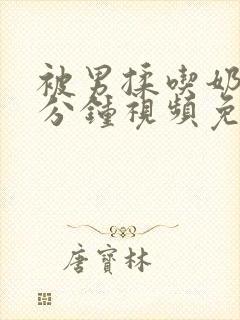 被男揉喫奶
分鐘視頻免
唐寶林